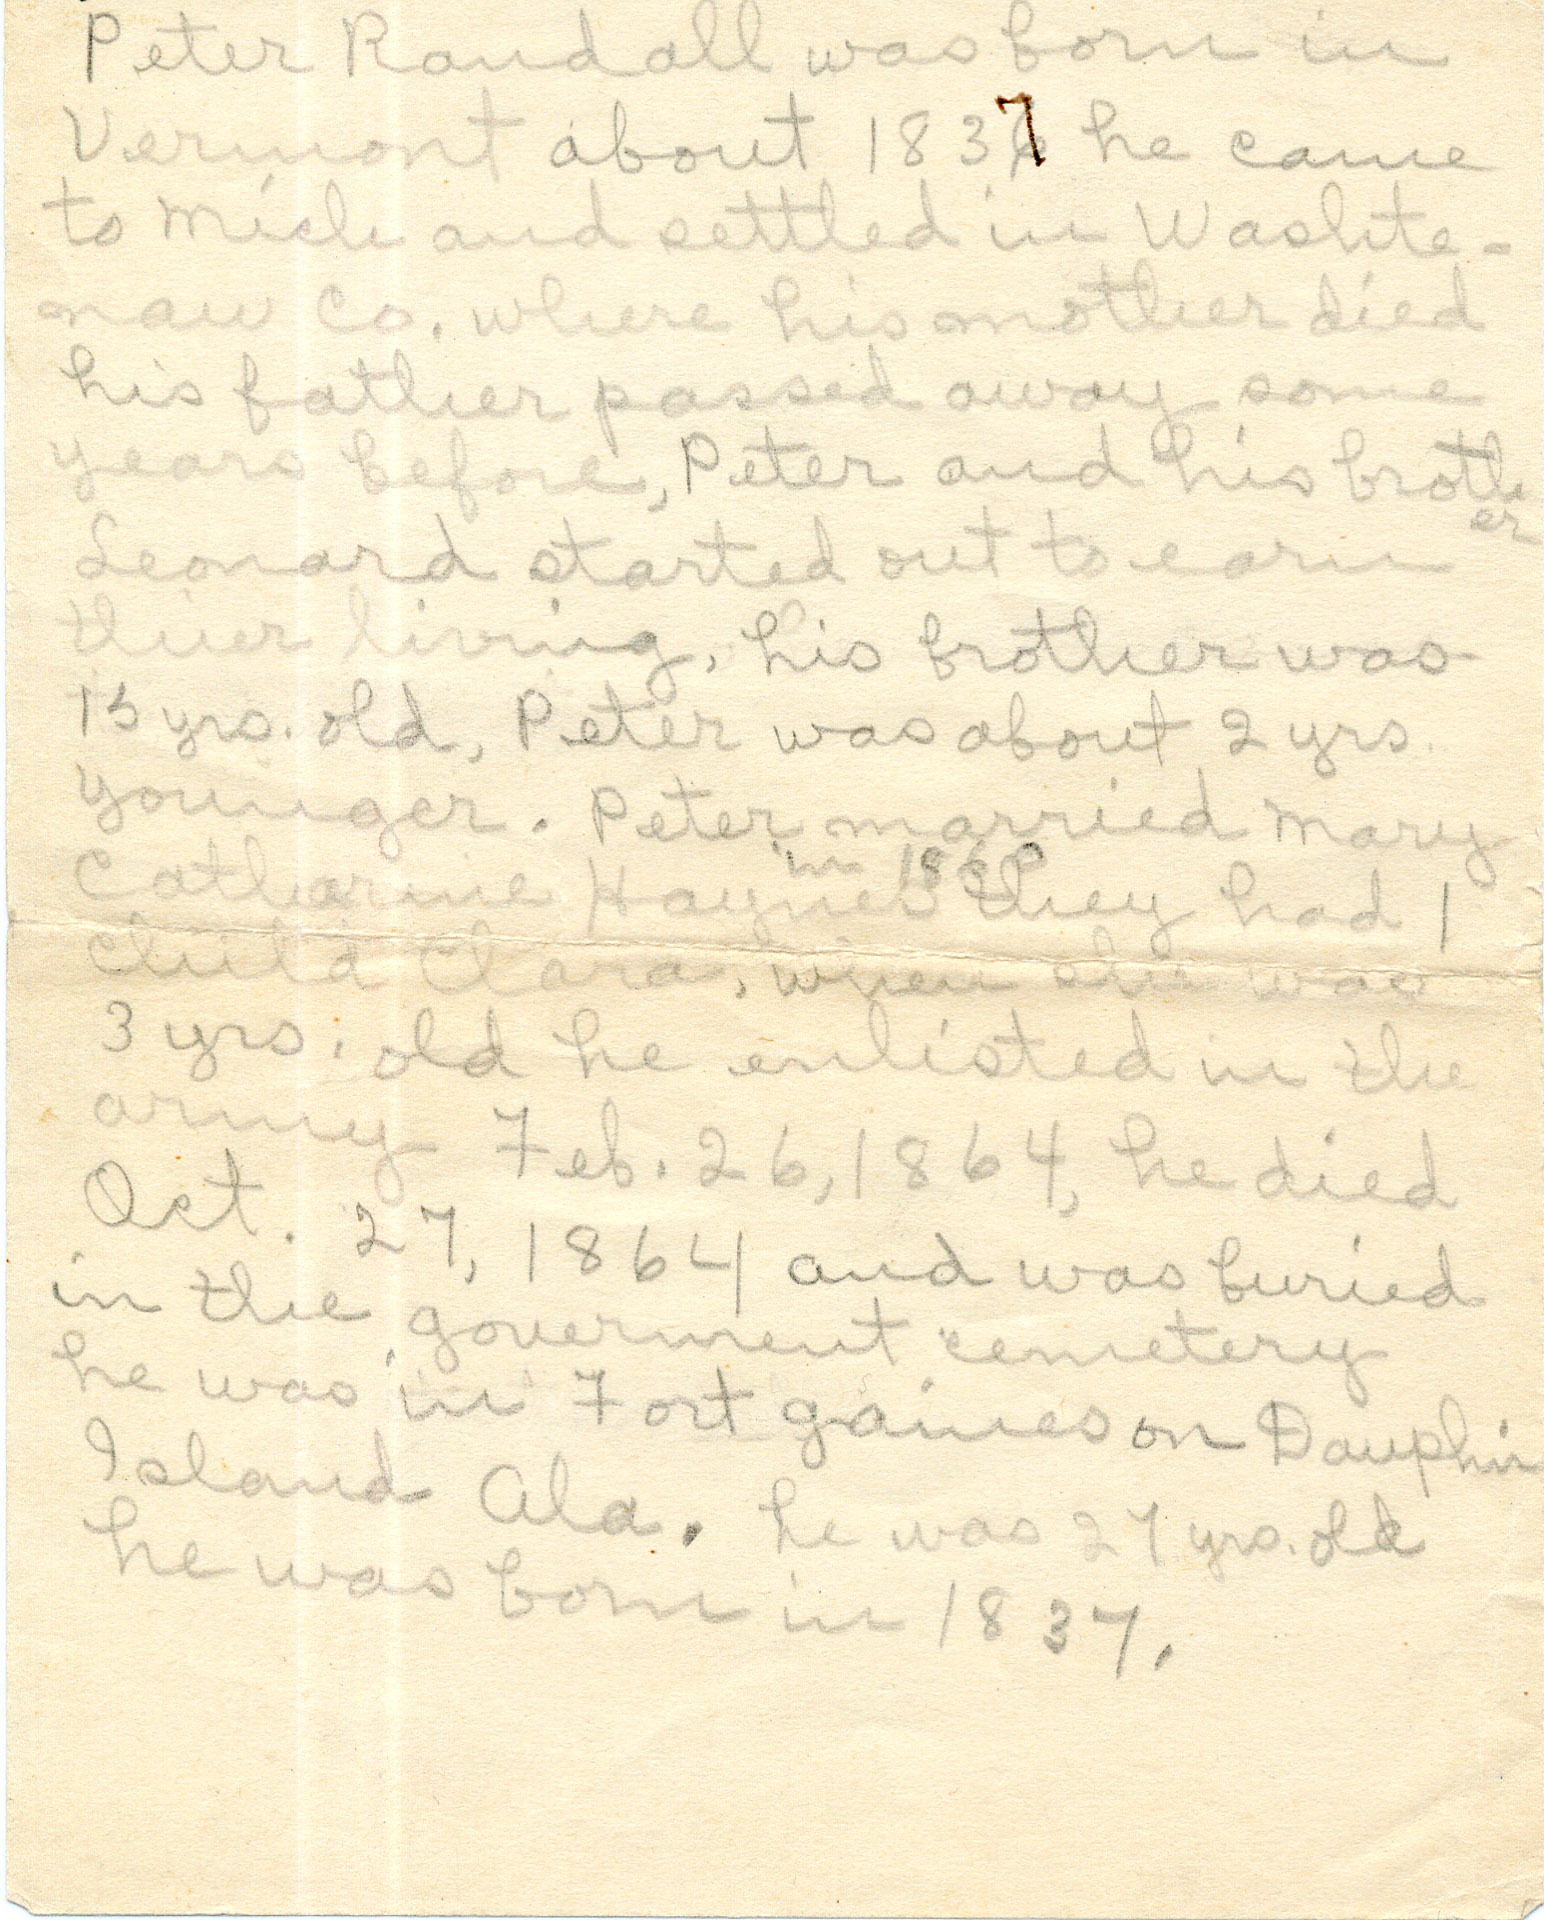 Peter Randall was born in
Vermont about 1837 he came
to Mich and settled in Washte-
naw Co. where his mother died
his father passed away some
years before, Peter and his brother
Leonard started out to earn
thier living, his brother was
15 yrs. old, Peter was about 2 yrs.
younger. Peter married Mary
in 1860
Catharine Haynes they had 1
child Clara, when she was
3 yrs. old he enlisted in the
army Feb. 26, 1864, he died
Oct. 27, 1864 and was buried
in the goverment cemetery
he was in Fort gaines on Dauphin
Island Ala. he was 27 yrs. old
he was born in 1837.